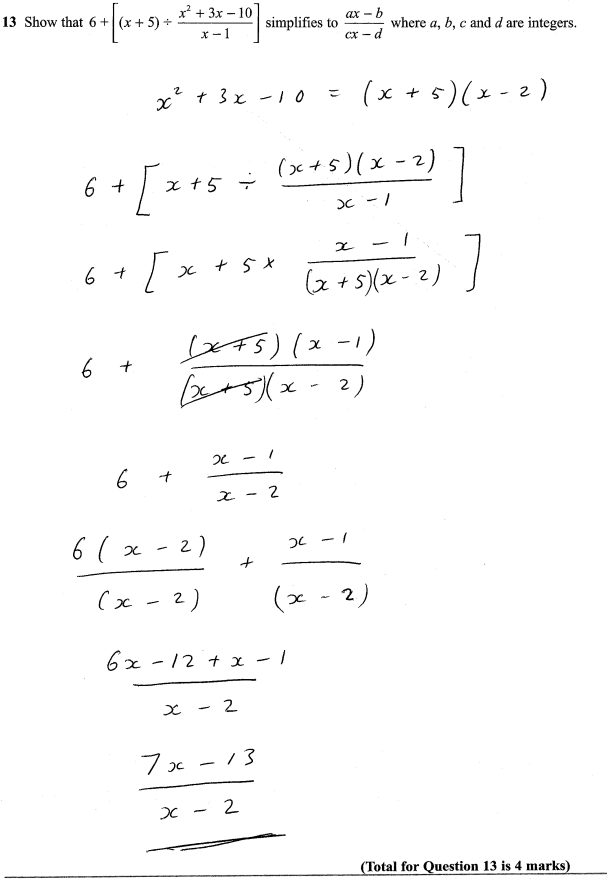 13 Show that 6 + [(x + 5) ÷ (x² + 3x – 10)/(x – 1)] simplifies to (ax – b)/(cx – d) where a, b, c and d are integers.
x² + 3x – 10 = (x + 5)(x – 2)
6 + [x + 5 ÷ (x + 5)(x – 2)/(x – 1)]
6 + [x + 5 × (x – 1)/((x + 5)(x – 2))]
6 + (x + 5)(x – 1)/((x + 5)(x – 2))
6 + (x – 1)/(x – 2)
6(x – 2)/(x – 2) + (x – 1)/(x – 2)
(6x – 12 + x – 1)/(x – 2)
(7x – 13)/(x – 2)
(Total for Question 13 is 4 marks)